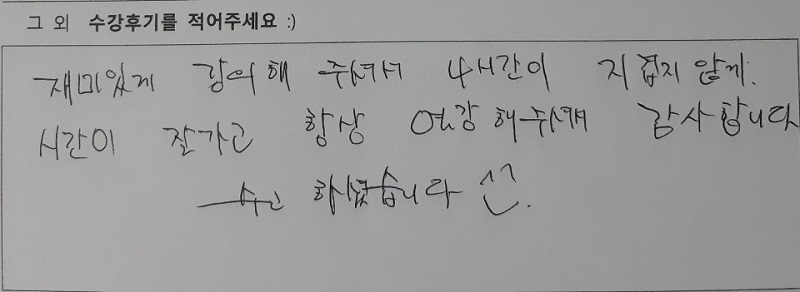 그 외 수강후기를 적어주세요 :)
재미있게 강의해 주셔서 4시간이 지겹지 않게.
시간이 잘가고 항상 열강해주셔서 감사합니다
수고 하셨습니다 ^^.